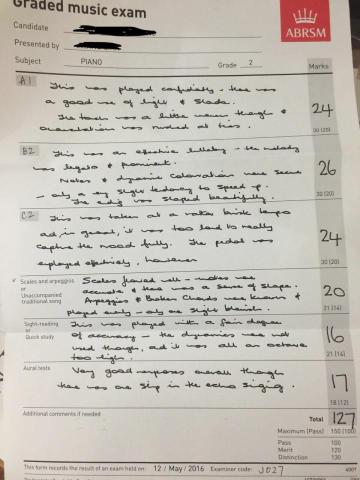 Graded music exam
ABRSM
Candidate
Presented by
Subject PIANO Grade 2
Marks
A1 This was played confidently - there was
a good use of light & shade.
The touch was a little uneven though &
was rushed at times.
24
30 (20)
B2 This was an effective lullaby - the melody
was legato & prominent.
Notes & dynamic colouration were secure
- only a very slight tendency to speed up.
The ending was shaped beautifully.
26
30 (20)
C2 This was taken at a rather brisk tempo
and, in general, it was too loud to really
capture the mood fully. The pedal was
employed effectively, however
24
30 (20)
Scales and arpeggios
or
Unaccompanied
traditional song
Scales flowed well - notes were
accurate & there was a sense of shape.
Arpeggios & Broken Chords were known &
played evenly - only one slight blemish.
20
21 (14)
Sight-reading
or
Quick study
This was played with a fair degree
of accuracy - the dynamics were not
used though, and it was all an octave
too high.
16
21 (14)
Aural tests
Very good responses overall though
there was one slip in the echo singing.
17
18 (12)
Additional comments if needed
Total 127
Maximum (Pass) 150 (100)
Pass 100
Merit 120
Distinction 130
This form records the result of an exam held on: 12 / May / 2016 Examiner code: J027